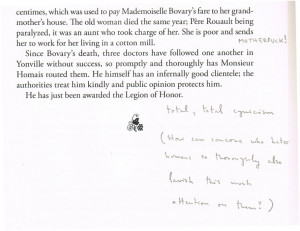 centimes, which was used to pay Mademoiselle Bovary's fare to her grand-
mother's house. The old woman died the same year; Père Rouault being
paralyzed, it was an aunt who took charge of her. She is poor and sends
her to work for her living in a cotton mill.
MOTHERFUCK!
Since Bovary's death, three doctors have followed one another in
Yonville without success, so promptly and thoroughly has Monsieur
Homais routed them. He himself has an infernally good clientele; the
authorities treat him kindly and public opinion protects him.
He has just been awarded the Legion of Honor.
total, total cynicism
(How can someone who hates
humans so thoroughly also
lavish this much
attention on them?)